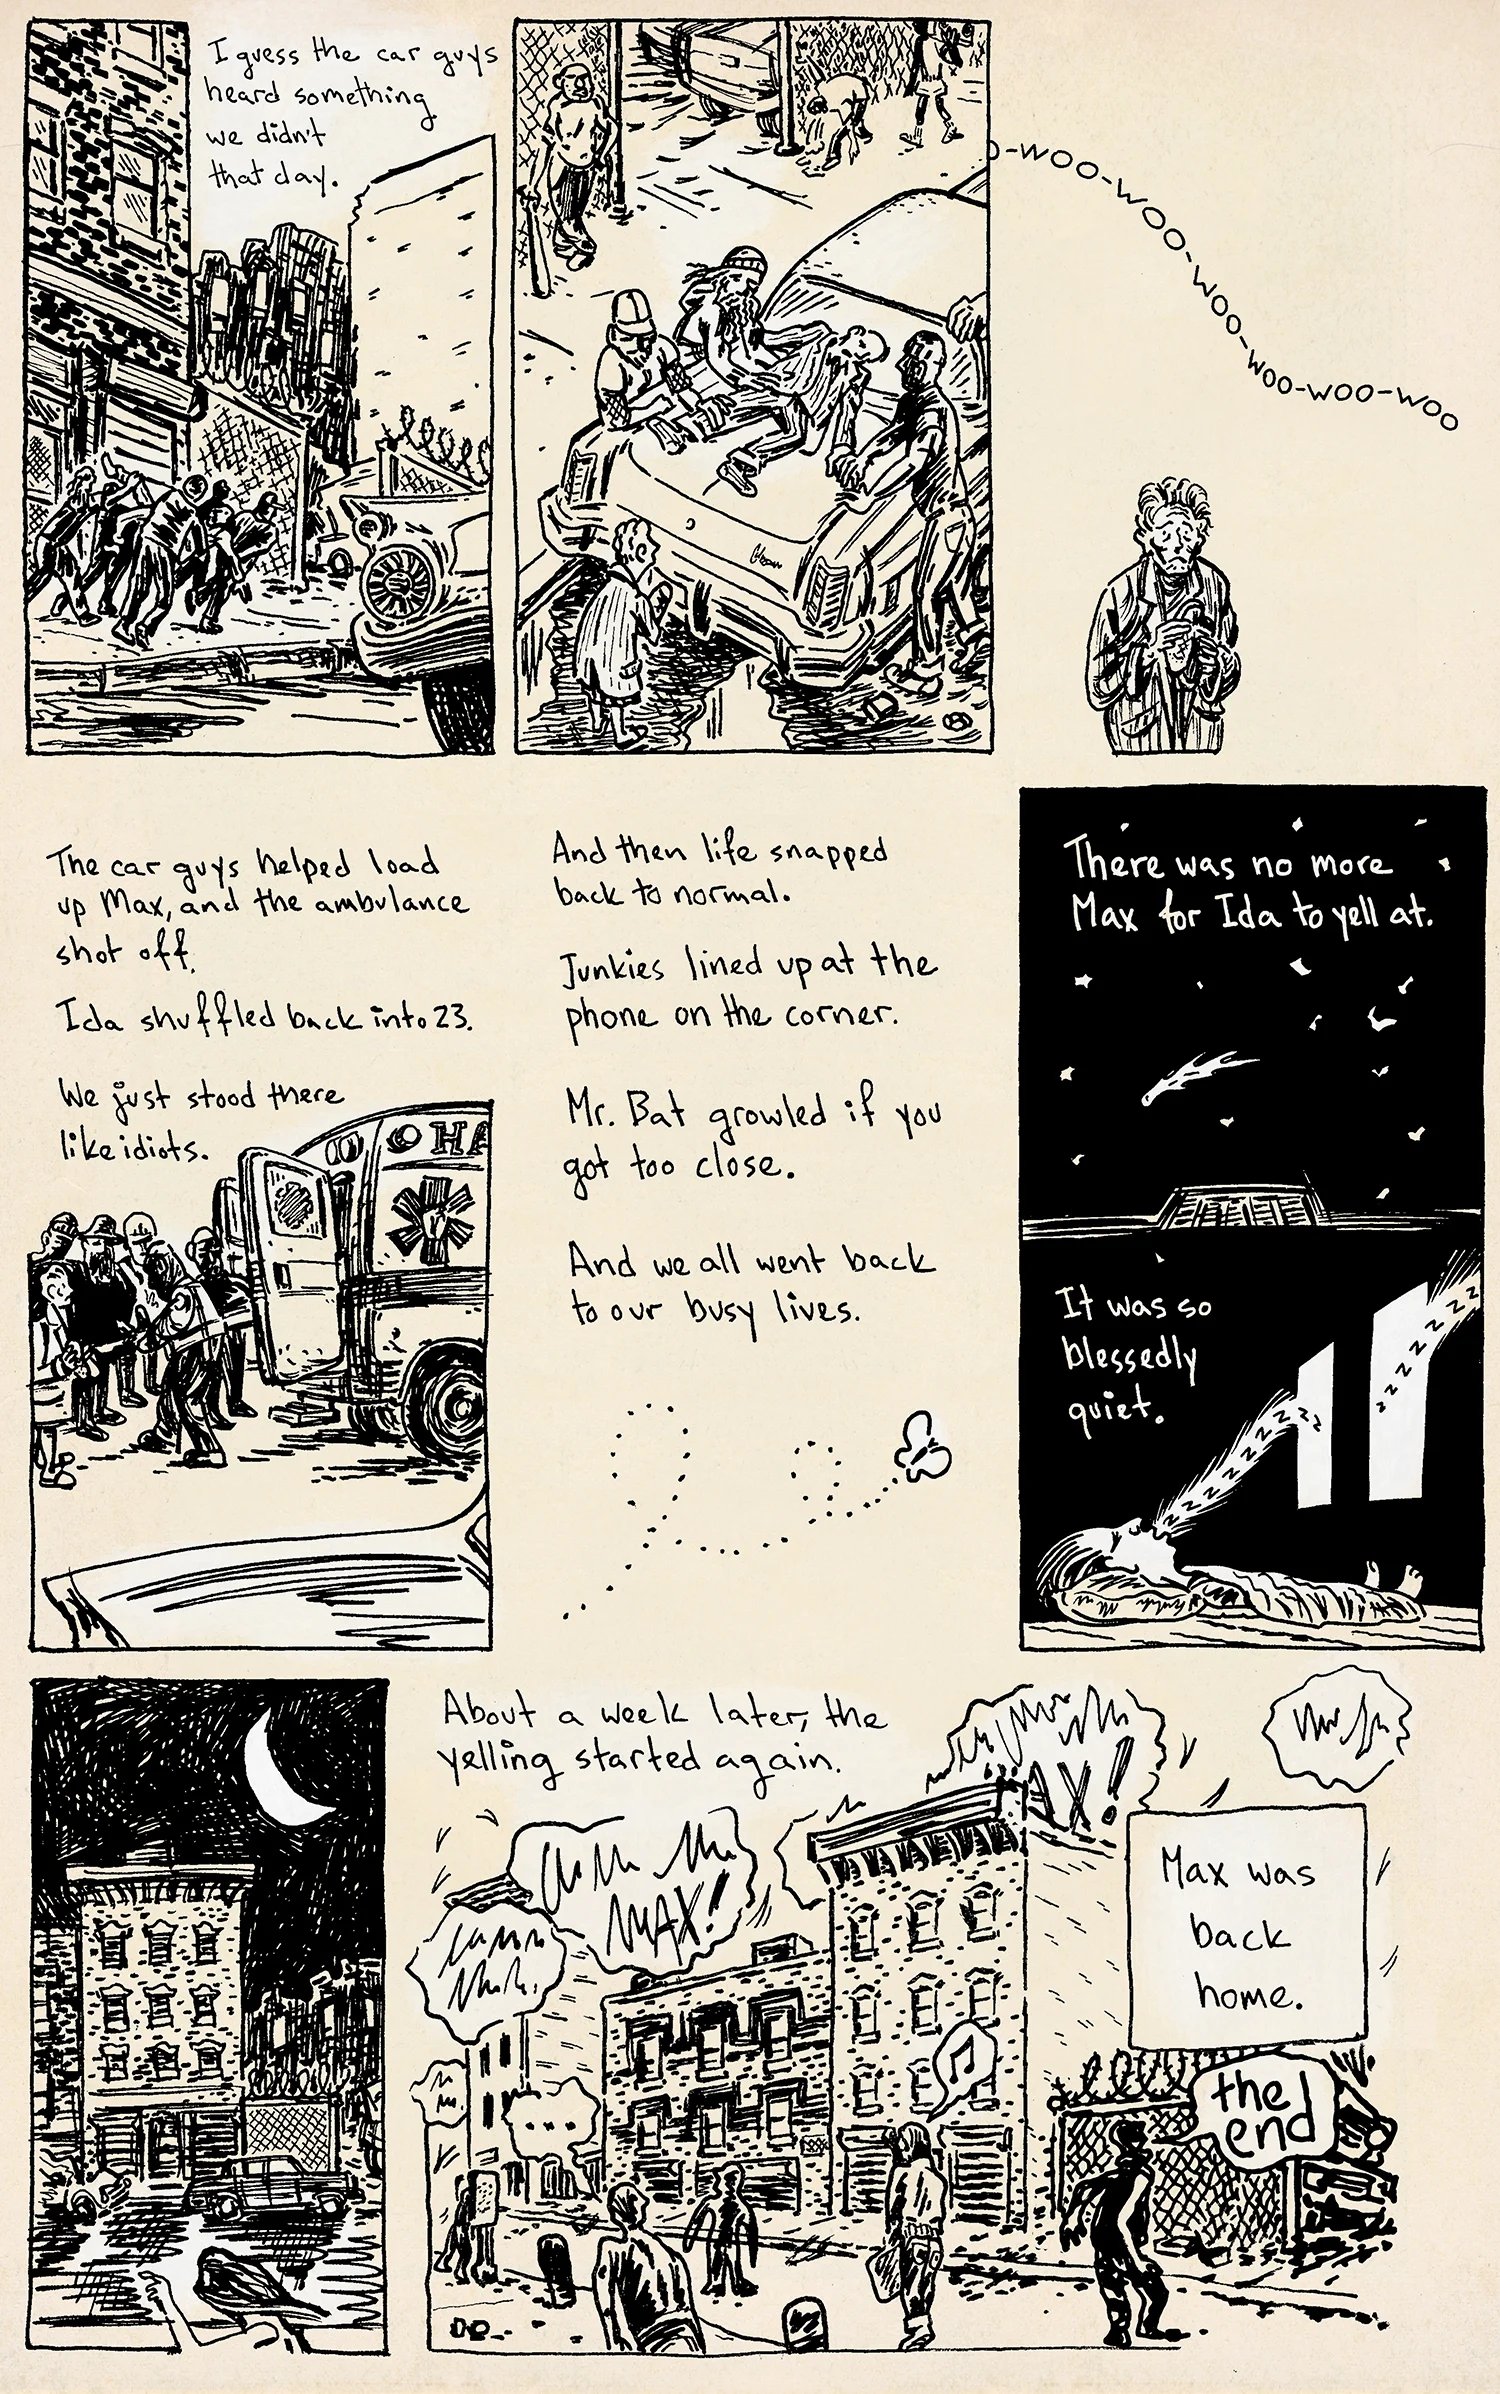 I guess the car guys
heard something
we didn't
that day.
O-WOO-WOO-WOO-WOO-WOO-WOO
The car guys helped load
up Max, and the ambulance
shot off.
Ida shuffled back into 23.
We just stood there
like idiots.
And then life snapped
back to normal.
Junkies lined up at the
phone on the corner.
Mr. Bat growled if you
got too close.
And we all went back
to our busy lives.
There was no more
Max for Ida to yell at.
It was so
blessedly
quiet.
zzzzzzzz
zzzzzzz
About a week later, the
yelling started again.
MAX!
AX!
...
Max was
back
home.
the
end